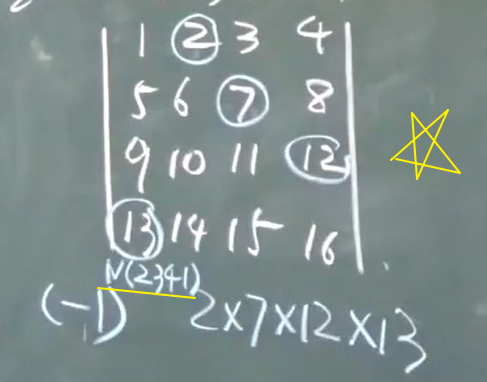 1 2 3 4
5 6 7 8
9 10 11 12
13 14 15 16
(-1)^N(2341) 2×7×12×13